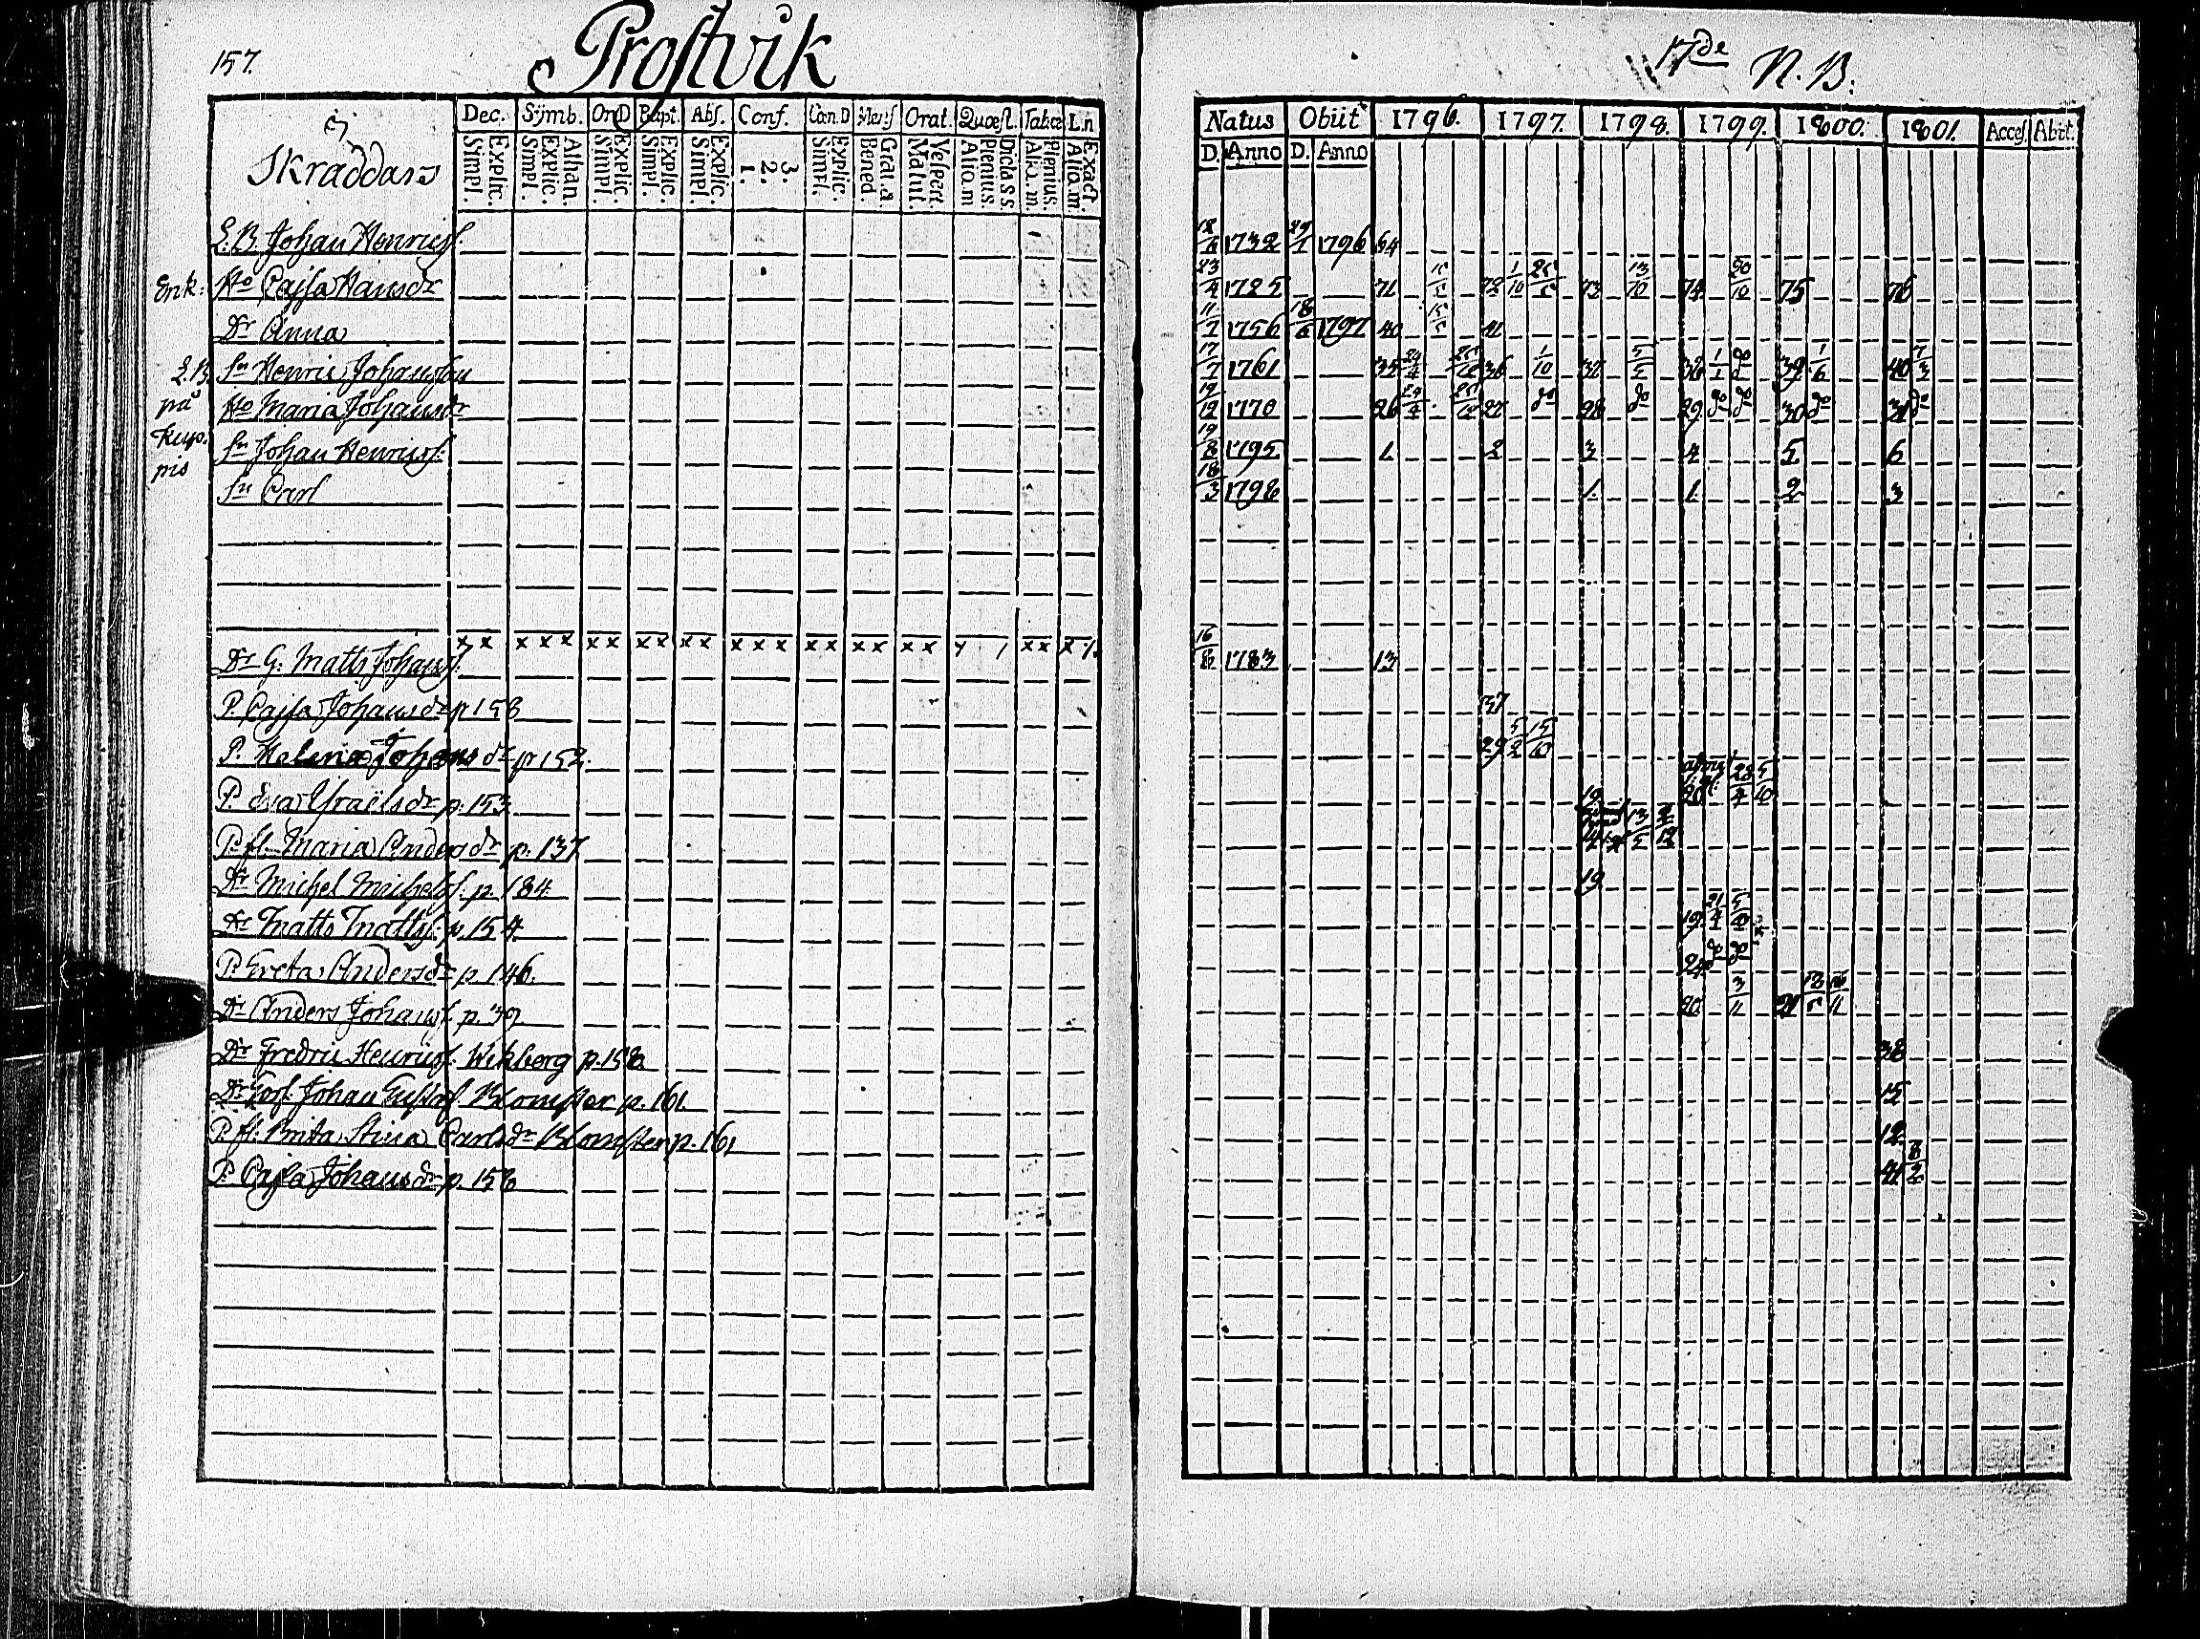 157.
Prostvik
Dec. Symb. Or D Bapt. Abs. Conf. Cœn. D Mens Oral. Quæst. Tab. œc L.n
Skraddars
Simpl. Explic. Simpl. Explic. Athan. Simpl. Explic. Simpl. Explic. Simpl. Explic. 1. 2. 3. Simpl. Explic. Bened. Grat. a Matut. Vespert. Aliq. m Plenius. Dicta S. S. Aliq. m. Plenius. Aliq. m. Exact.
L. B. Johan Henricss.
Enk: H:o Cajsa Hansdr
Dr Anna
L. B. Sn Henric Johansson
på H:o Maria Johansdr
kup. Sn Johan Henricss:
pis
Sn Carl
Dr G: Matts Johanss. x x x x x x x x x x x x x x x x x x x x x
P. Cajsa Johansdr p 158
P. Helena Johansdr p 152.
P. Eva Israelsdr p. 153
P. fl. Maria Andersdr p. 137
Dr Michel Michelss. p. 184
Dr Matts Mattss: p. 154
P. Greta Andersdr p. 146.
Dr Anders Johanss. p. 39
Dr Fredric Henricss. Wikberg p. 158
Dr Goss. Johan Gustafs. Blomster p. 161.
P. fl. Brita Stina Carlsdr Blomster p. 161
P. Cajsa Johansdr p. 158
17de N. B:
Natus Obiit 1796. 1797. 1798. 1799. 1800. 1801. Access. Abit.
D. Anno D. Anno
1732 29/1 1796 64
23/4 1725 71 72 1/10 73 13/10 74 30/10 75 76
11/7 1756 18/6 1797 40 41
17/7 1761 35 24/4 36 1/10 37 38 39 1/6 40 7/3
19/12 1770 26 24/4 27 do 28 do 29 do do 30 do 31 do
19/8 1795 1 2 3 4 5 6
18/3 1798 1. 1. 2 3
16/8 1783 13
37
29 5/2 15/10
19 20 28/4 5/10
13/5
19
19 21/4 5/10
24 do do
20 3/11 21
38
15
12
41 8/2